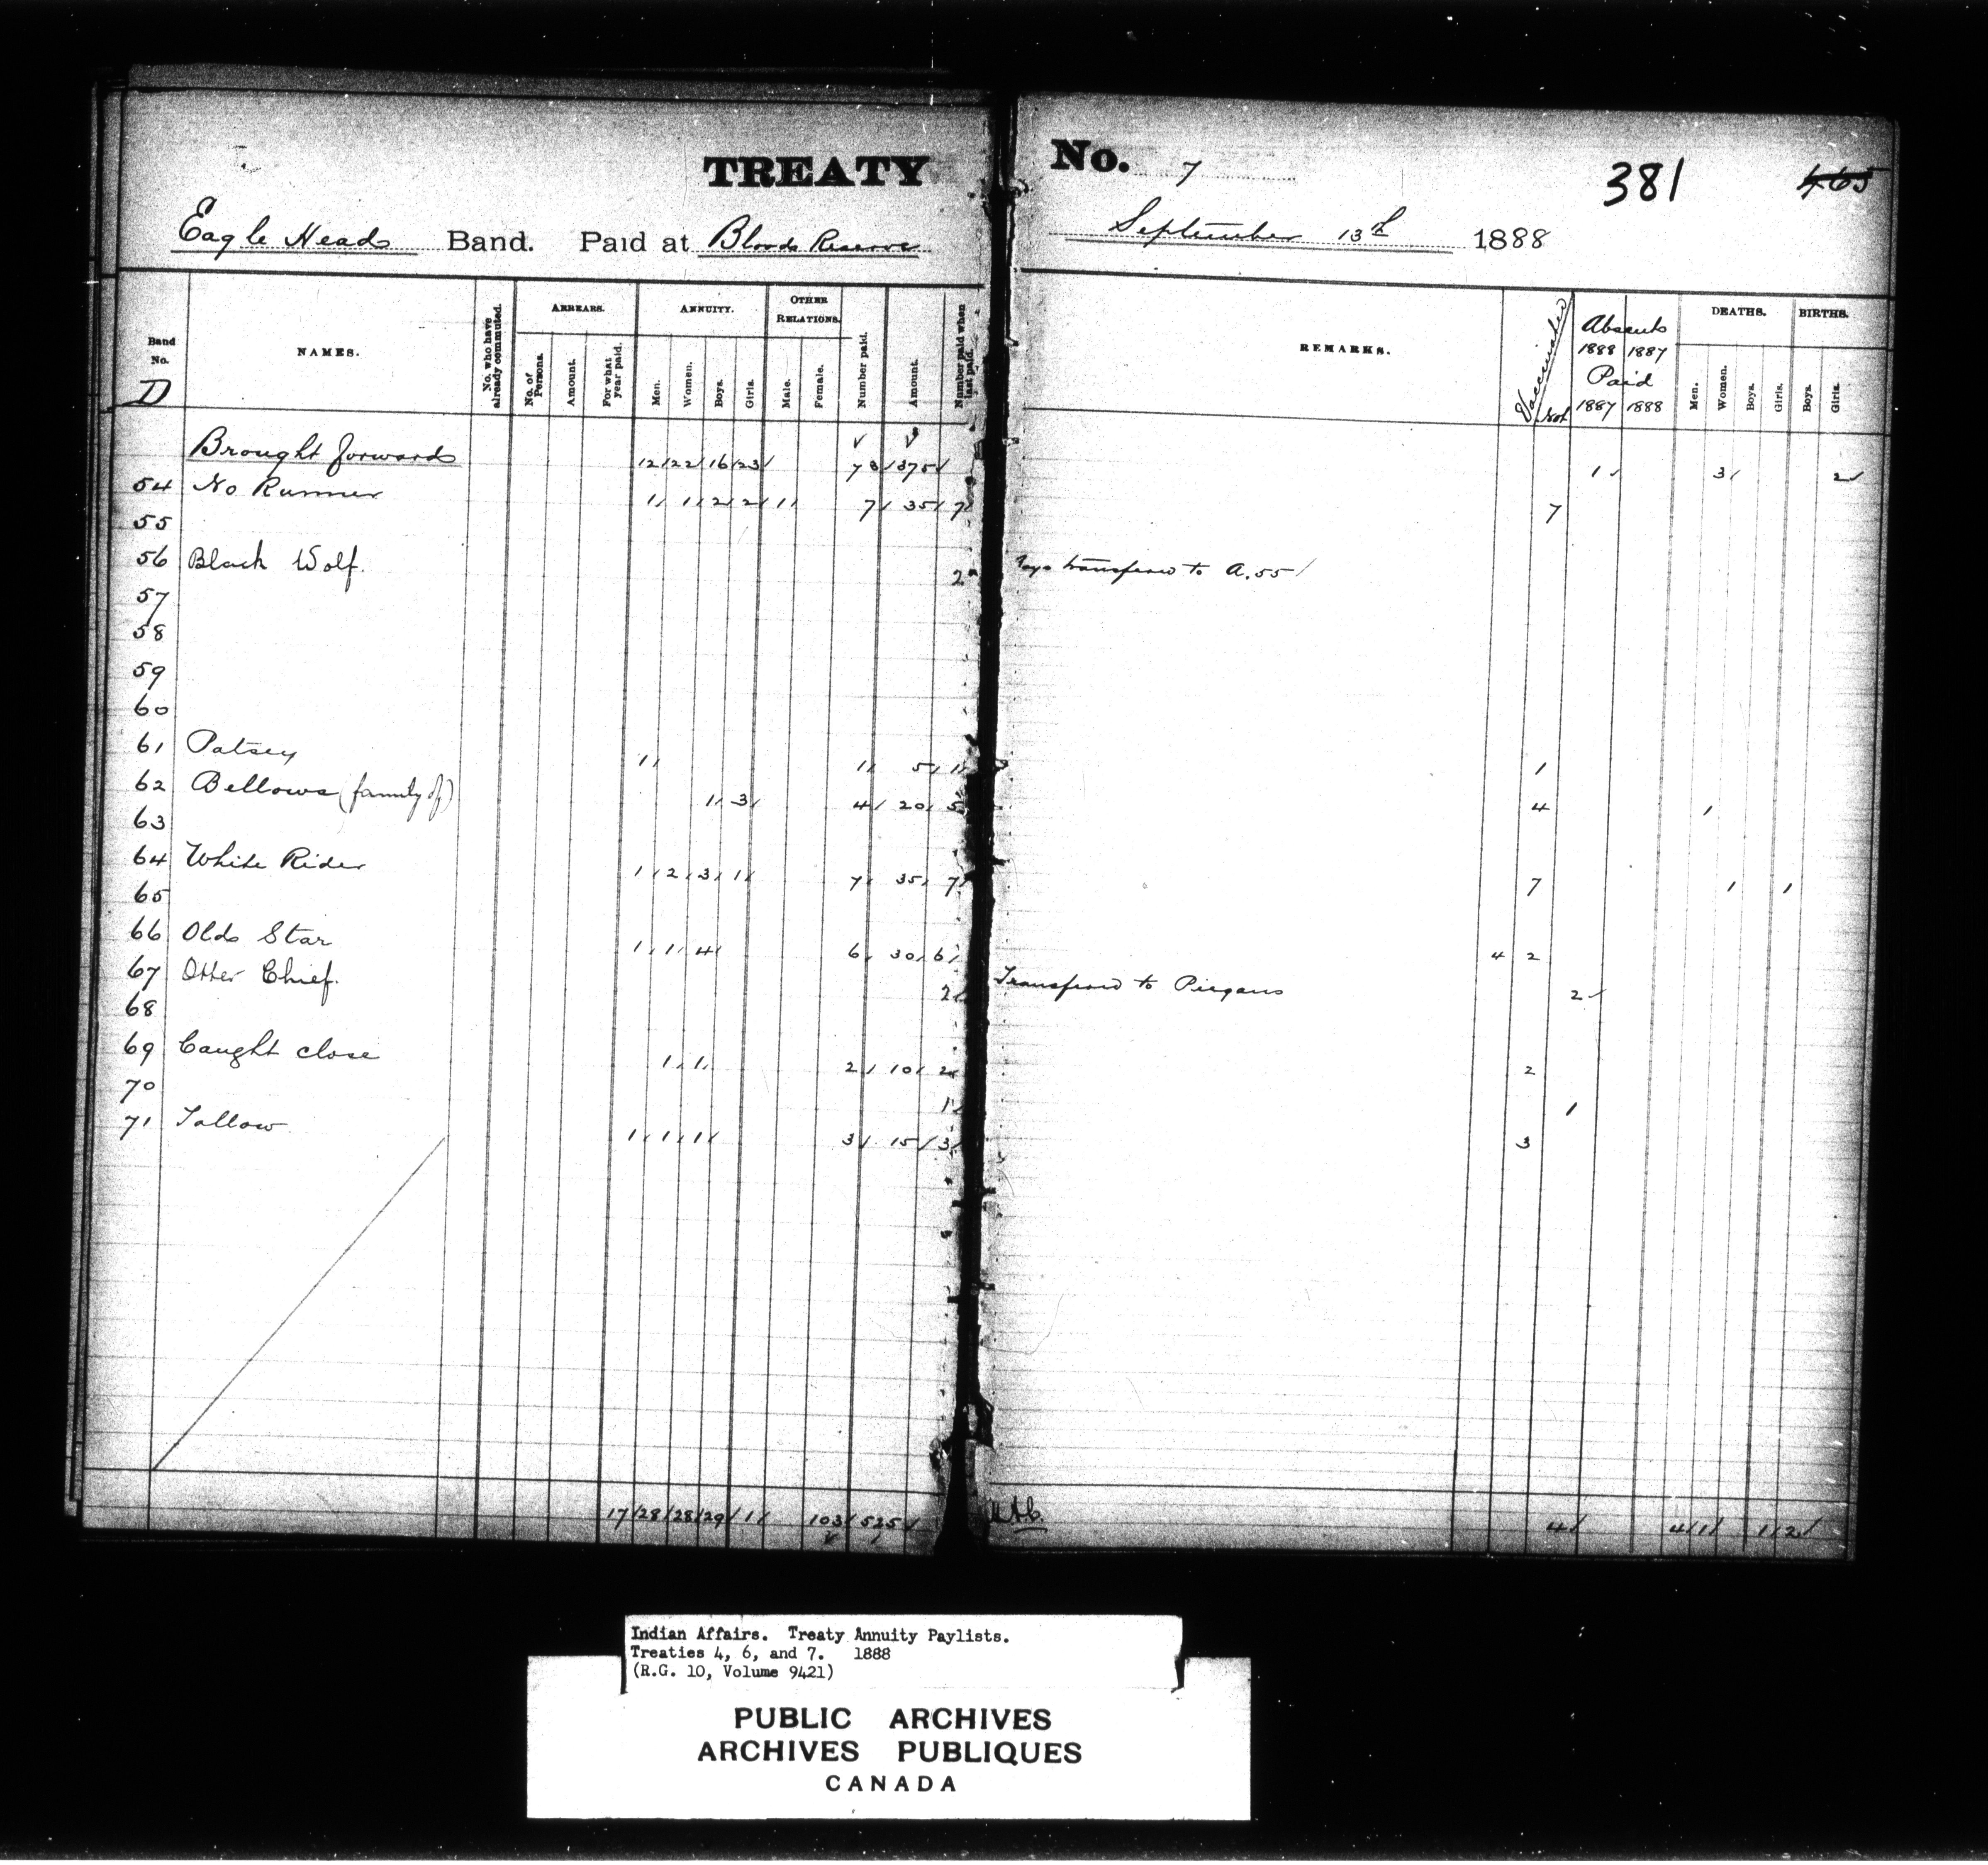 TREATY No. 7 381 465
Eagle Heads Band. Paid at Bloods Reserve September 13th 1888
Band No. D NAMES. No. who have already commuted. ARREARS. No. of Persons. Amount. For what year paid. ANNUITY. Men. Women. Boys. Girls. OTHER RELATIONS. Male. Female. Number paid. Amount. Number paid when last paid. REMARKS. Vaccinated Not Absents 1888 1887 Paid 1887 1888 DEATHS. Men. Women. Boys. Girls. BIRTHS. Boys. Girls.
Brought forward 12/ 22/ 16/ 23/ 73/ 375/ 1/ 3/ 2/
54 No Runner 1/ 1/ 2/ 2/ 1/ 7/ 35/ 7/ 7
55
56 Black Wolf. 2 transferred to A. 55/
57
58
59
60
61 Patsey 1/ 1/ 5/ 1/ 1
62 Bellows (family of) 1/ 3/ 4/ 20/ 5/ 4 1
63
64 White Rider 1/ 2/ 3/ 1/ 7/ 35/ 7/ 7 1 1
65
66 Olds Star 1/ 1/ 4/ 6/ 30/ 6/ 4 2
67 Otter Chief. 2/ Transferred to Piegans 2/
68
69 Caught close 1/ 1/ 2/ 10/ 2/ 2
70 1/ 1
71 Tallow 1/ 1/ 1/ 3/ 15/ 3/ 3
17/ 28/ 28/ 29/ 1/ 103/ 525/ 4/ 4/ 1/ 1/ 2/
Indian Affairs. Treaty Annuity Paylists.
Treaties 4, 6, and 7. 1888
(R.G. 10, Volume 9421)
PUBLIC ARCHIVES
ARCHIVES PUBLIQUES
CANADA